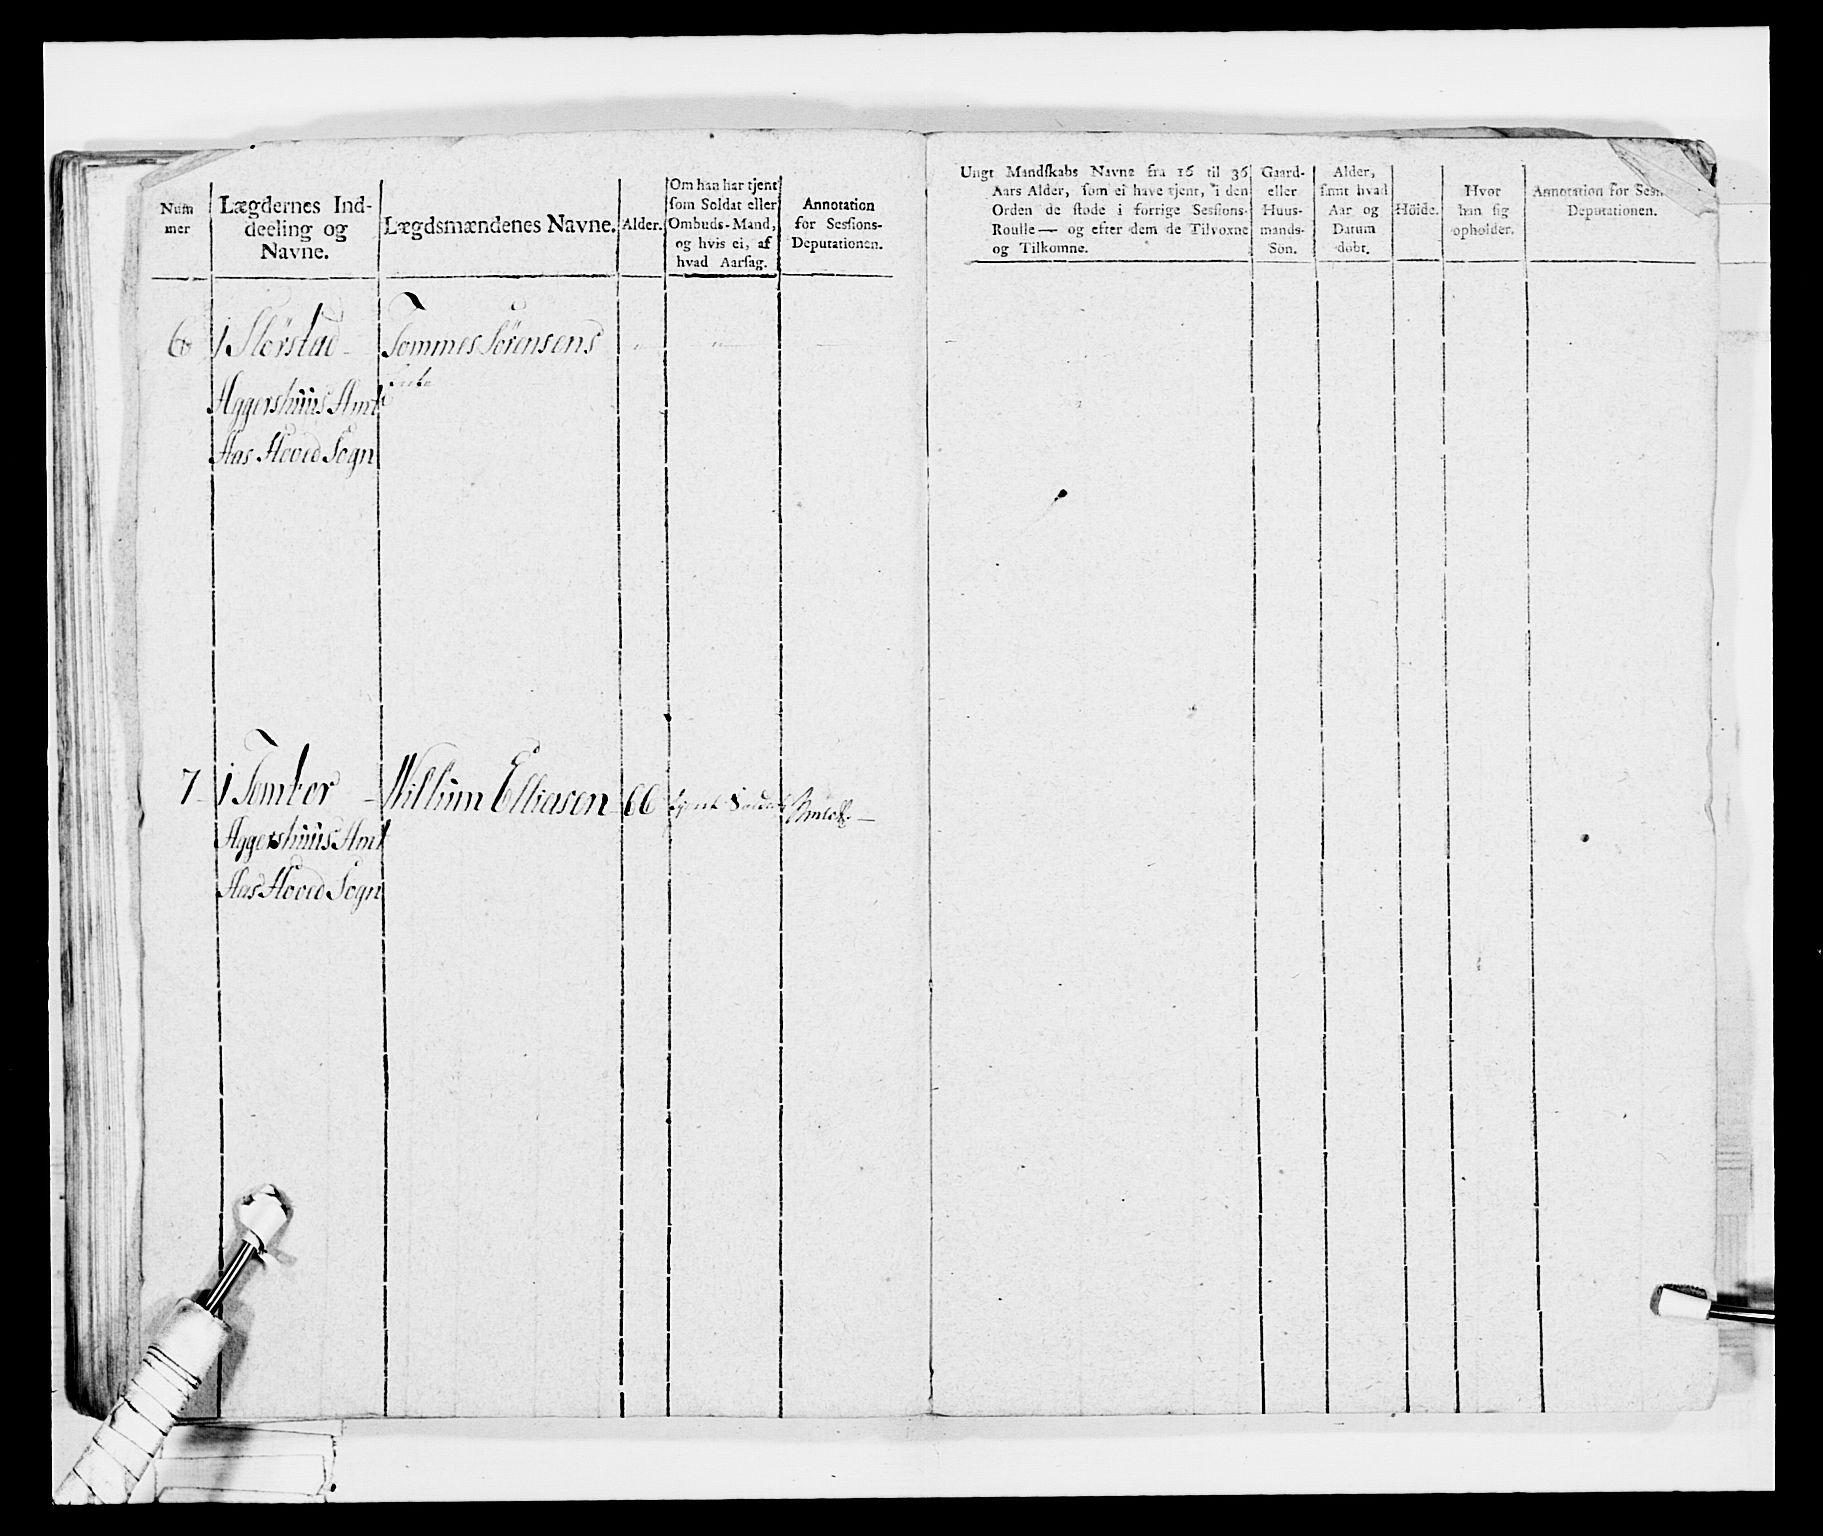 Num
mer
Lægdernes Ind-
deeling og
Navne.
Lægdsmændenes Navne.
Alder.
Om han har tjent
som Soldat eller
Ombuds-Mand,
og hvis ei, af
hvad Aarsag.
Annotation
for Sessions-
Deputationen.
Ungt Mandskabs Navne fra 16 til 36
Aars Alder, som ei have tjent, i den
Orden de stode i forrige Sessions-
Roulle — og efter dem de Tilvoxne
og Tilkomne.
Gaard-
eller
Huus-
mands-
Sön.
Alder,
samt hvad
Aar og
Datum
döbt.
Höide.
Hvor
han sig
opholder.
Annotation for Ses
Deputationen.
6 1 Storstad - Tommes Sörensens
Aggershuus Amt
Aas Hoved Sogn
7 - 1 Tomter - Willum Elliasen - 66 tjent Soldat
Aggershuus Amt
Aas Hoved Sogn